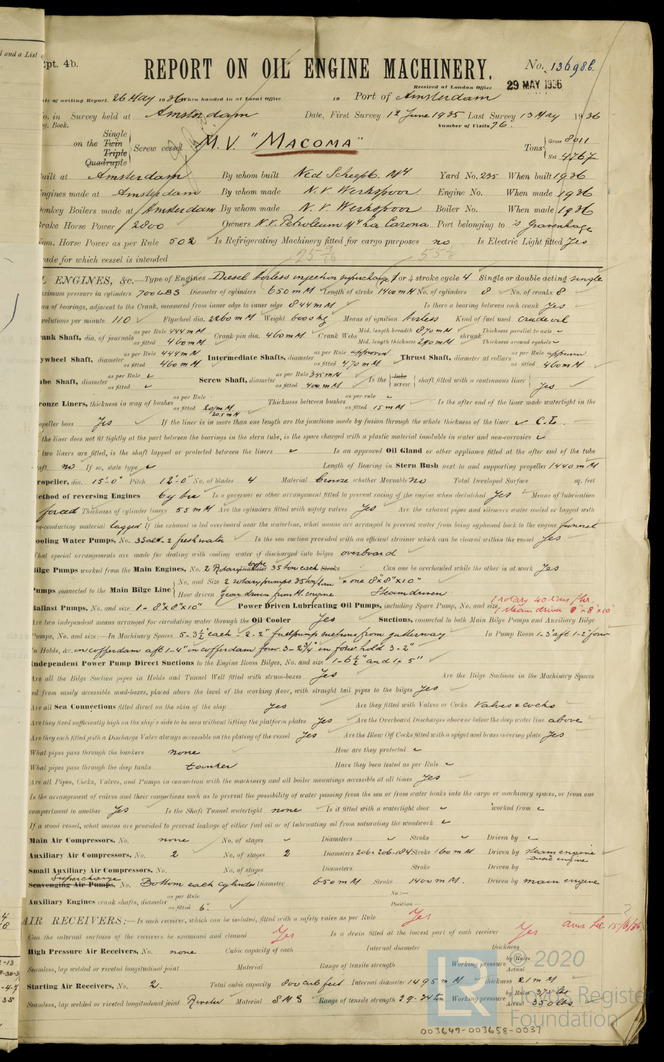 d and a List
pt. 4b.
REPORT ON OIL ENGINE MACHINERY.
No. 136986
Received at London Office
29 MAY 1936
of writing Report. 26 May 1936 When handed in at Local Office 19 Port of Amsterdam
No. in Survey held at Amsterdam Date, First Survey 12 June 1935 Last Survey 13 May 1936
Book. Number of Visits 76.
on the Single Twin Triple Quadruple Screw vessel M.V. "MACOMA" Tons Gross 8011 Net
Built at Amsterdam By whom built Ned Scheepb. Mij Yard No. 235 When built 1936
Engines made at Amsterdam By whom made N.V. Werkspoor Engine No. When made 1936
Donkey Boilers made at Amsterdam By whom made N.V. Werkspoor Boiler No. When made 1936
Brake Horse Power 2800 Owners N.V. Petroleum Mij La Corona Port belonging to s'Gravenhage
Nom. Horse Power as per Rule 502 Is Refrigerating Machinery fitted for cargo purposes no Is Electric Light fitted Yes
Trade for which vessel is intended
OIL ENGINES, &c.—Type of Engines Diesel airless injection supercharge 2 or 4 stroke cycle 4 Single or double acting single
Maximum pressure in cylinders 700 LBS Diameter of cylinders 650 mM Length of stroke 1400 mM No. of cylinders 8 No. of cranks 8
of bearings, adjacent to the Crank, measured from inner edge to inner edge 844 mM Is there a bearing between each crank Yes
Revolutions per minute 110 Flywheel dia. 2260 mM Weight Means of ignition airless Kind of fuel used crude oil
Crank Shaft, dia. of journals as per Rule 444 mM as fitted 460 mM Crank pin dia. 460 mM Crank Webs Mid. length breadth 870 mM Mid. length thickness 290 mM shrunk Thickness parallel to axis Thickness around eyehole
Flywheel Shaft, diameter as per Rule 444 mM as fitted 460 mM Intermediate Shafts, diameter as per Rule approved as fitted 470 mM Thrust Shaft, diameter at collars as per Rule approved as fitted 460 mM
Tube Shaft, diameter as per Rule as fitted Screw Shaft, diameter as per Rule as fitted Is the tube screw shaft fitted with a continuous liner Yes
Bronze Liners, thickness in way of bushes as per Rule as fitted Thickness between bushes as per rule as fitted 15 mM Is the after end of the liner made watertight in the
propeller boss Yes If the liner is in more than one length are the junctions made by fusion through the whole thickness of the liner C.L.
the liner does not fit tightly at the part between the bearings in the stern tube, is the space charged with a plastic material insoluble in water and non-corrosive
two liners are fitted, is the shaft lapped or protected between the liners Is an approved Oil Gland or other appliance fitted at the after end of the tube
shaft no If so, state type Length of Bearing in Stern Bush next to and supporting propeller 1440 mM
Propeller, dia. 15'-0" Pitch 12'-0" No. of blades 4 Material bronze whether Moveable no Total Developed Surface sq. feet
Method of reversing Engines by air Is a governor or other arrangement fitted to prevent racing of the engine when declutched Yes Means of lubrication
forced Thickness of cylinder liners 55 mM Are the cylinders fitted with safety valves Yes Are the exhaust pipes and silencers water cooled or lagged with
non-conducting material lagged If the exhaust is led overboard near the waterline, what means are arranged to prevent water from being syphoned back to the engine funnel
Cooling Water Pumps, No. 3 salt 2 fresh water Is the sea suction provided with an efficient strainer which can be cleared within the vessel Yes
What special arrangements are made for dealing with cooling water if discharged into bilges overboard
Bilge Pumps worked from the Main Engines, No. 2 Rotary type 35 tons each Stroke Can one be overhauled while the other is at work Yes
Pumps connected to the Main Bilge Line No. and Size 2 rotary pumps 35 tons/hr + one 8x8"x10" How driven Gear driven from M. engine Steam driven
Ballast Pumps, No. and size 1-8"x8"x10" Power Driven Lubricating Oil Pumps, including Spare Pump, No. and size 1 rotary 40 tons/hr. 1 steam driven 8"x8"x10"
Are two independent means arranged for circulating water through the Oil Cooler Yes Suctions, connected to both Main Bilge Pumps and Auxiliary Bilge
Pumps, No. and size:—In Machinery Spaces 5-3½" each 2-2" In Pump Room
In Holds, &c. in cofferdam aft 1-4" in cofferdam forw. 3-2¾" in fore hold 3-2"
Independent Power Pump Direct Suctions to the Engine Room Bilges, No. and size 1-6½" and 1-5"
Are all the Bilge Suction pipes in Holds and Tunnel Well fitted with strum-boxes Yes Are the Bilge Suctions in the Machinery Spaces
led from easily accessible mud-boxes, placed above the level of the working floor, with straight tail pipes to the bilges Yes
Are all Sea Connections fitted direct on the skin of the ship Yes Are they fitted with Valves or Cocks Valves & cocks
Are they fixed sufficiently high on the ship's side to be seen without lifting the platform plates Yes Are the Overboard Discharges above or below the deep water line above
Are they each fitted with a Discharge Valve always accessible on the plating of the vessel Yes Are the Blow Off Cocks fitted with a spigot and brass covering plate Yes
What pipes pass through the bunkers none How are they protected
What pipes pass through the deep tanks tanker Have they been tested as per Rule
Are all Pipes, Cocks, Valves, and Pumps in connection with the machinery and all boiler mountings accessible at all times Yes
Is the arrangement of valves and their connections such as to prevent the possibility of water passing from the sea or from water tanks into the cargo or machinery spaces, or from one
compartment to another Yes Is the Shaft Tunnel watertight none Is it fitted with a watertight door worked from
If a wood vessel, what means are provided to prevent leakage of either fuel oil or of lubricating oil from saturating the woodwork
Main Air Compressors, No. none No. of stages Diameters Stroke Driven by
Auxiliary Air Compressors, No. 2 No. of stages 2 Diameters Stroke 160 mM Driven by steam engine Diesel engine
Small Auxiliary Air Compressors, No. No. of stages Diameters Stroke Driven by
Supercharge
Scavenging Air Pumps, No. Bottom each cylinder Diameter 650 mM Stroke 1400 mM. Driven by main engine
Auxiliary Engines crank shafts, diameter as per Rule as fitted 6" No. Position
AIR RECEIVERS:—Is each receiver, which can be isolated, fitted with a safety valve as per Rule Yes
Can the internal surfaces of the receivers be examined and cleaned Yes Is a drain fitted at the lowest part of each receiver Yes
High Pressure Air Receivers, No. none Cubic capacity of each Internal diameter thickness
Seamless, lap welded or riveted longitudinal joint Material Range of tensile strength Working pressure by Rules Actual
Starting Air Receivers, No. 2 Total cubic capacity 800 cub feet Internal diameter 1495 mM thickness 21 mM
Seamless, lap welded or riveted longitudinal joint Riveted Material S M S Range of tensile strength Working pressure by Rules Actual 350 lbs
LR
© 2020
Lloyd's Register
Foundation
003649-003658-0037